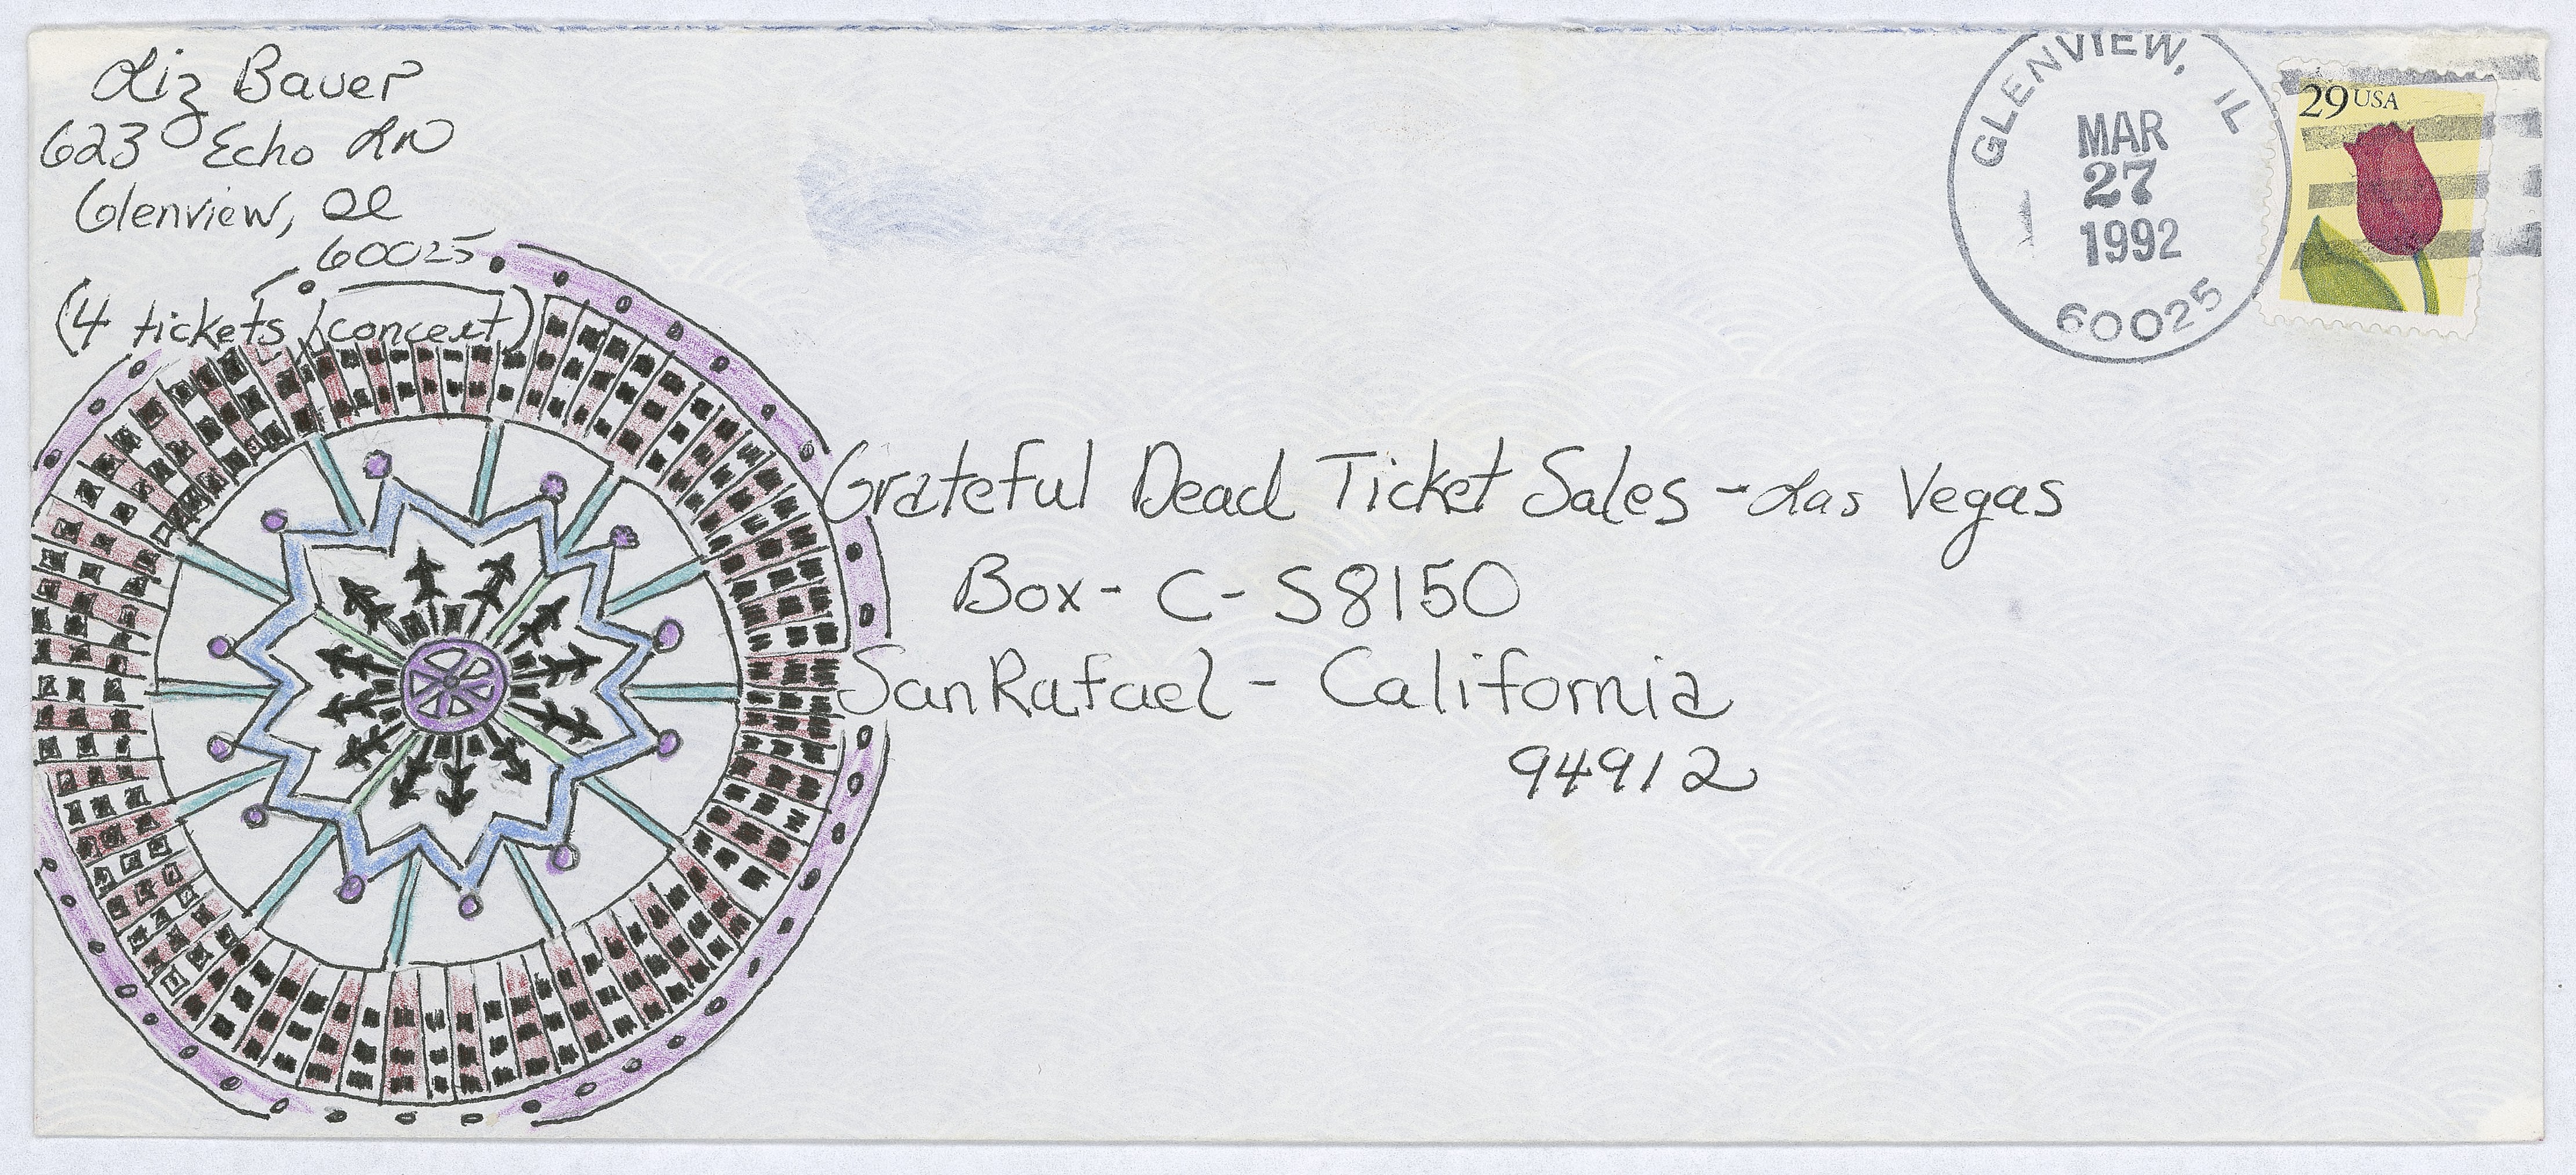 Liz Bauer
623 Echo LN
Glenview, Il
60025
(4 tickets/concert)
GLENVIEW, IL
MAR
27
1992
60025
29 USA
Grateful Dead Ticket Sales - Las Vegas
Box - C - S8150
San Rafael - California
94912